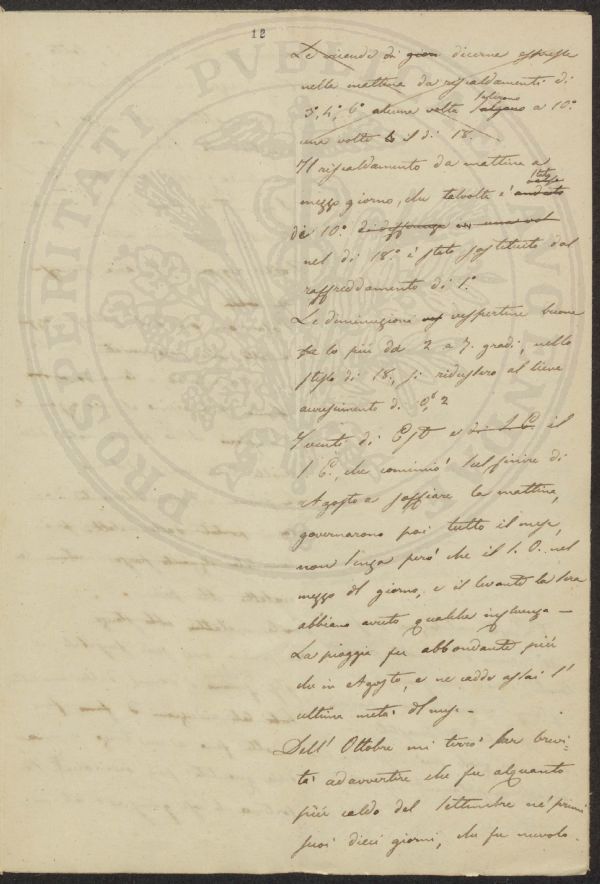 12
Le vicende di gior dicerne espresse
nelle mattine da riscaldamenti di
3°, 4°, 6° alcuna volta salgano a 10°
una volta il di 18.
Il riscaldamento da mattina a
mezzo giorno, che talvolta e' andato
di 10° di differenza in una vol
nel di 18° è stato sostituito dal
raffreddamento di 1°.
Le diminuzioni vespertine buone
per lo più da 2 a 7. gradi, nello
stesso di 18, si ridussero al lieve
accrescimento di 0°, 2
I venti di Est e di S. E. il
S. E., che cominciò sul finire di
Agosto a soffiare la mattina,
governarono poi tutto il mese,
non senza però che il S. O. nel
mezzo del giorno, e il levante la sera
abbiano avuto qualche influenza —
La pioggia fu abbondante più
che in Agosto, e ne cadde assai l'
ultima metà del mese.
Dell' Ottobre mi terrò per brevi-
tà ad avvertire che fu alquanto
più caldo del Settembre ne' primi
suoi dieci giorni, che fu nuvolo.
PROSPERITATI PVBLICAE